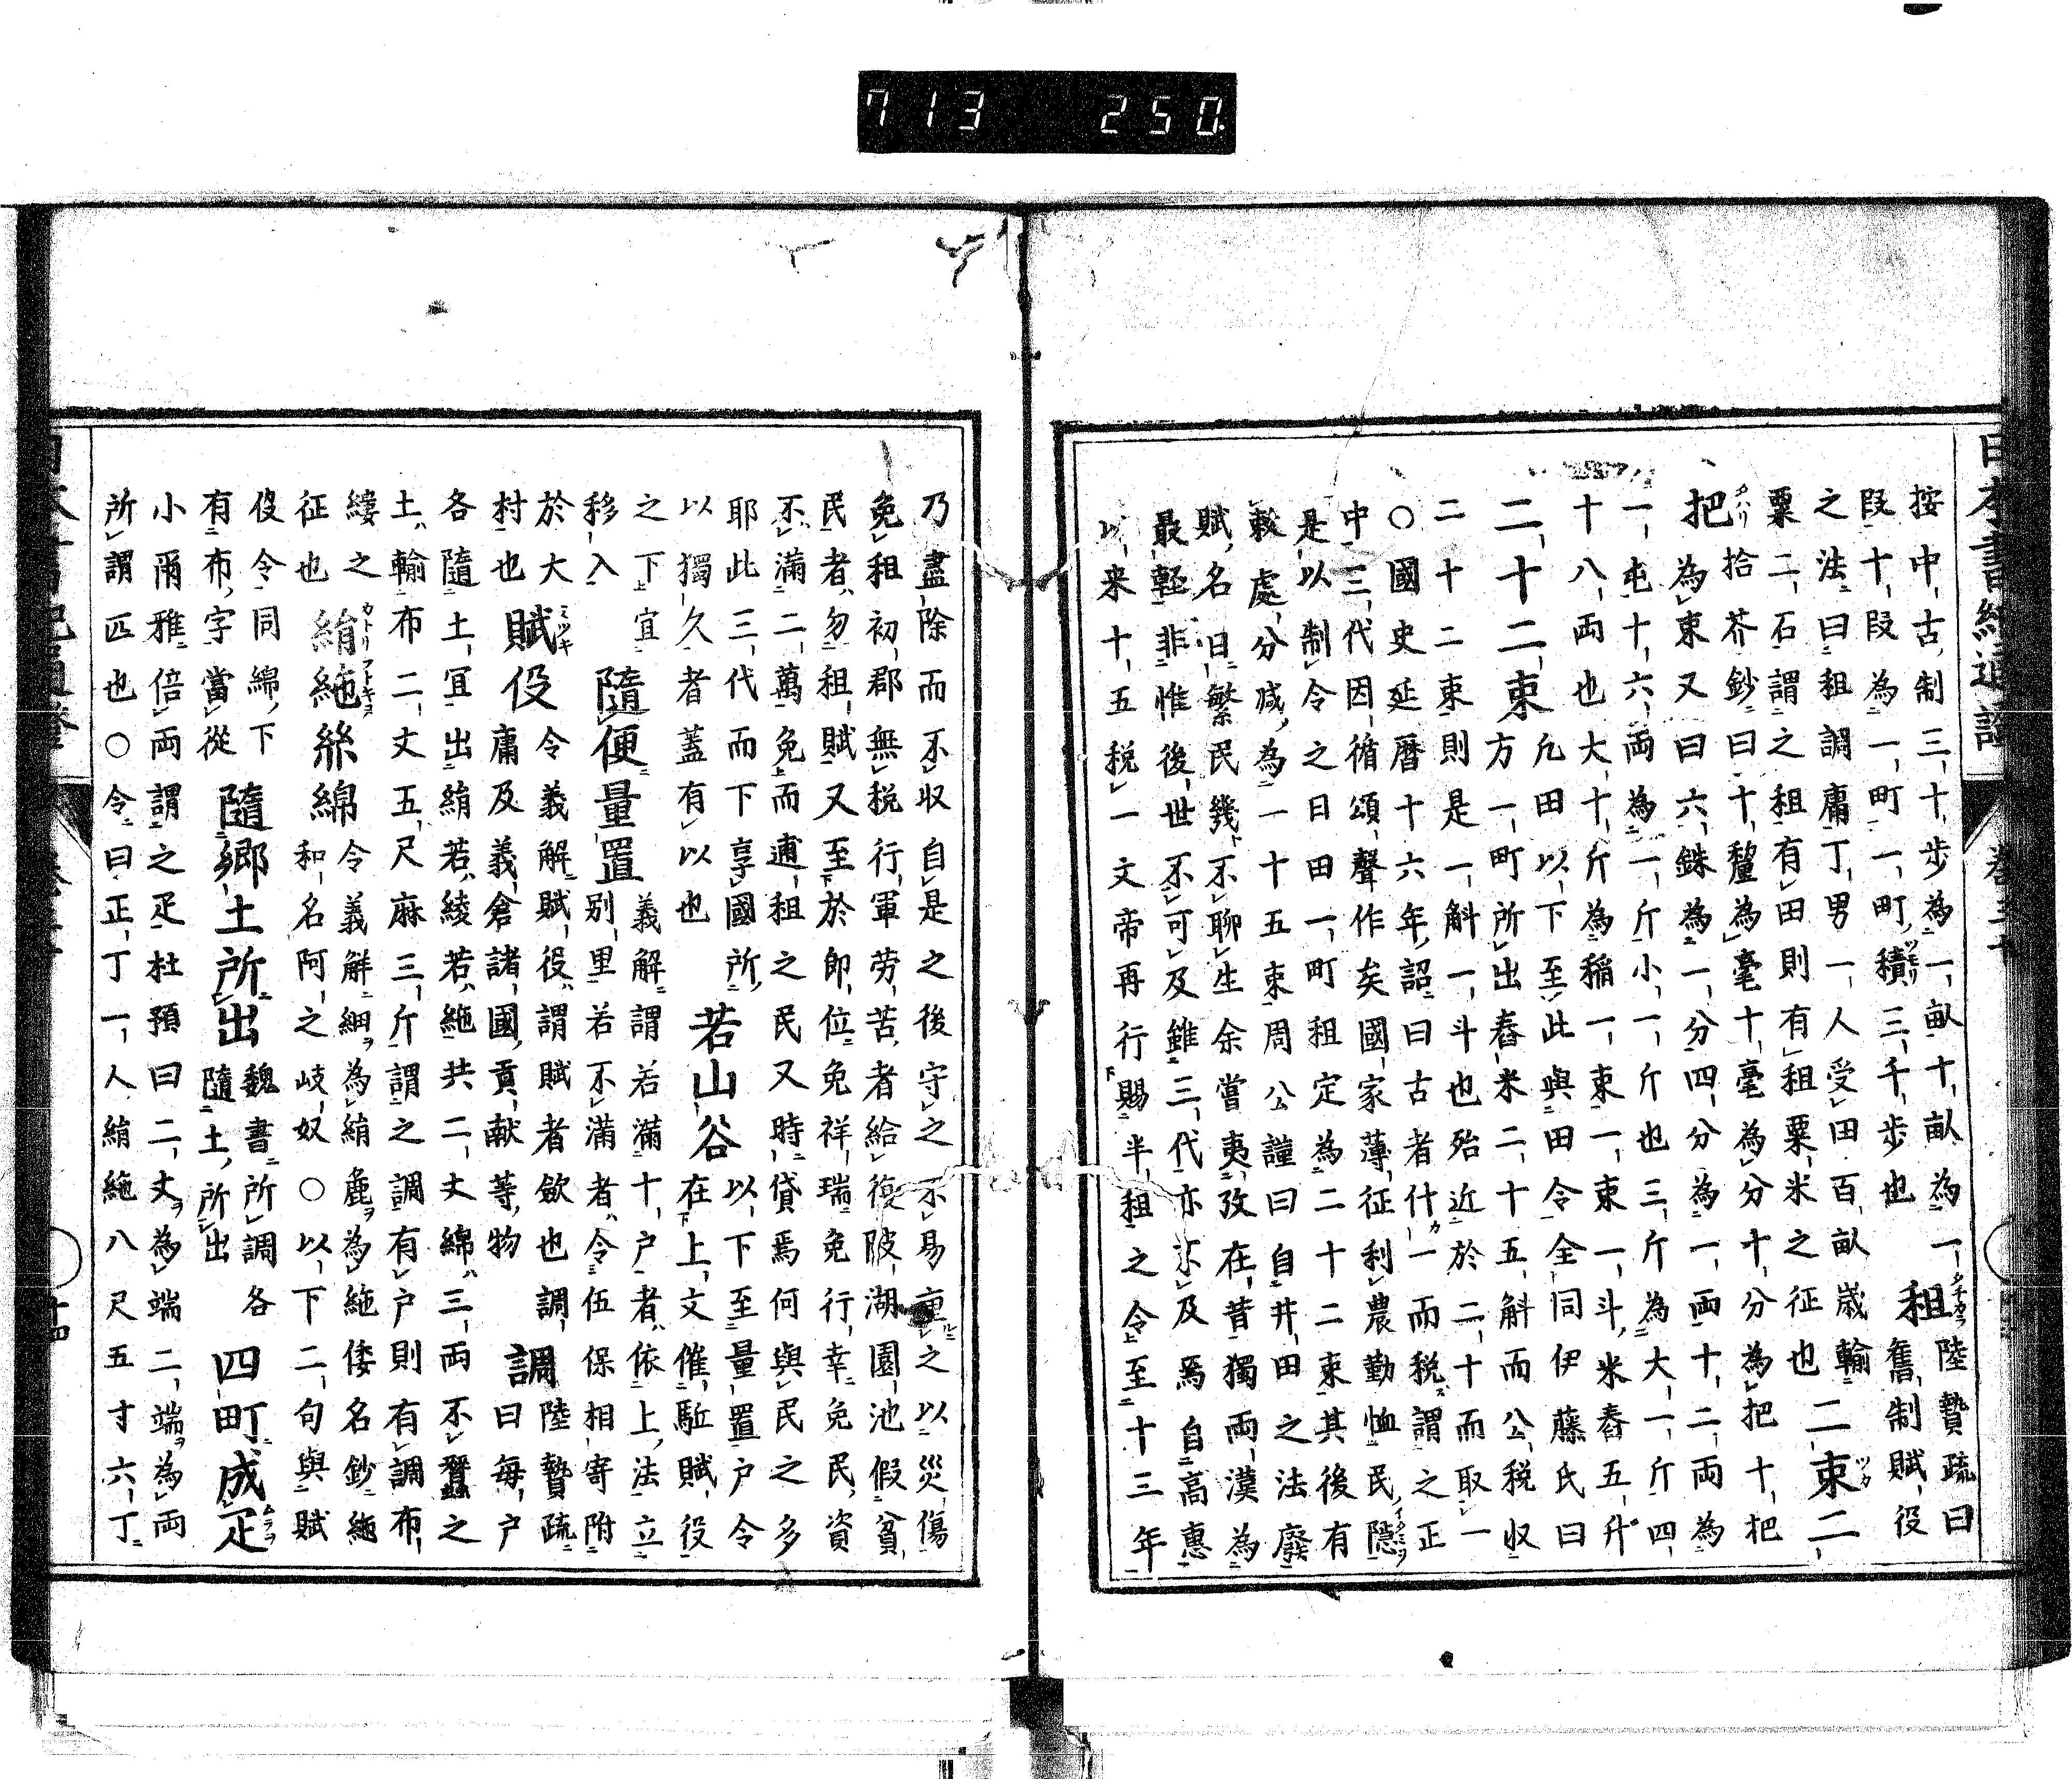 713 250.
按中古制三十歩為一畝十畝為一
段十段為一町一町積三千歩也
租
陸贄疏曰
舊制賦役
之法曰租調庸丁男一人受田百畝歳輸
粟二石謂之租有田則有租粟米之征也
二束二
把
拾芥鈔曰十釐為毫十毫為分十分為把十把
為束又曰六銖為一分四分為一両十二両為
一屯十六両為一斤小一斤也三斤為大一斤四
十八両也大十斤為稲一束一束一斗米舂五升
二十二束
凢田以下至此與田令全同伊藤氏曰
方一町所出舂米二十五斛而公税収
二十二束則是一斛一斗也殆近於二十而取一
○國史延暦十六年詔曰古者什一而税謂之正
中三代因循頌聲作矣國家薄征利農勤恤民隱
是以制令之日田一町租定為二十二束其後有
敕處分减為一十五束周公謹曰自井田之法廢
賦名日繁民幾不聊生余嘗夷攷在昔獨両漢為
最軽非惟後世不可及雖三代亦不及焉自高惠
以来十五税一文帝再行賜半租之令至十三年
乃盡除而不収自是之後守之不易亟之以災傷
免租初郡無税行軍劳苦者給復陂湖園池假貧
民者勿租賦又至於即位免祥瑞免行幸免民資
不満二萬免而逋租之民又時貸焉何與民之多
耶此三代而下享國所
以獨久者蓋有以也
若山谷
以下至量置户令
在上文催駈賦役
之下宜
移入
隨便量置
義解謂若滿十户者依上法立
别里若不滿者令伍保相寄附
於大
村也
賦役
令義解賦役謂賦者歛也調
庸及義倉諸國貢献等物
調
陸贄疏
曰毎户
各隨土冝出絹若綾若絁共二丈綿三両不蠶之
土輸布二丈五尺麻三斤謂之調有户則有調布
縷之
征也
絹絁絲綿
令義解細為絹麁為絁倭名鈔絁
和名阿之岐奴○以下二句與賦
役令同綿下
有布字當從
隨郷土所出
魏書所調各
隨土所出
四町成疋
小爾雅倍両謂之疋杜預曰二丈為端二端為両
所謂匹也○令曰正丁一人絹絁八尺五寸六丁